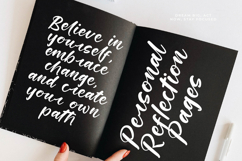 Believe in
yourself,
embrace
change,
and create
your own
path
Personal
Reflection
Pages